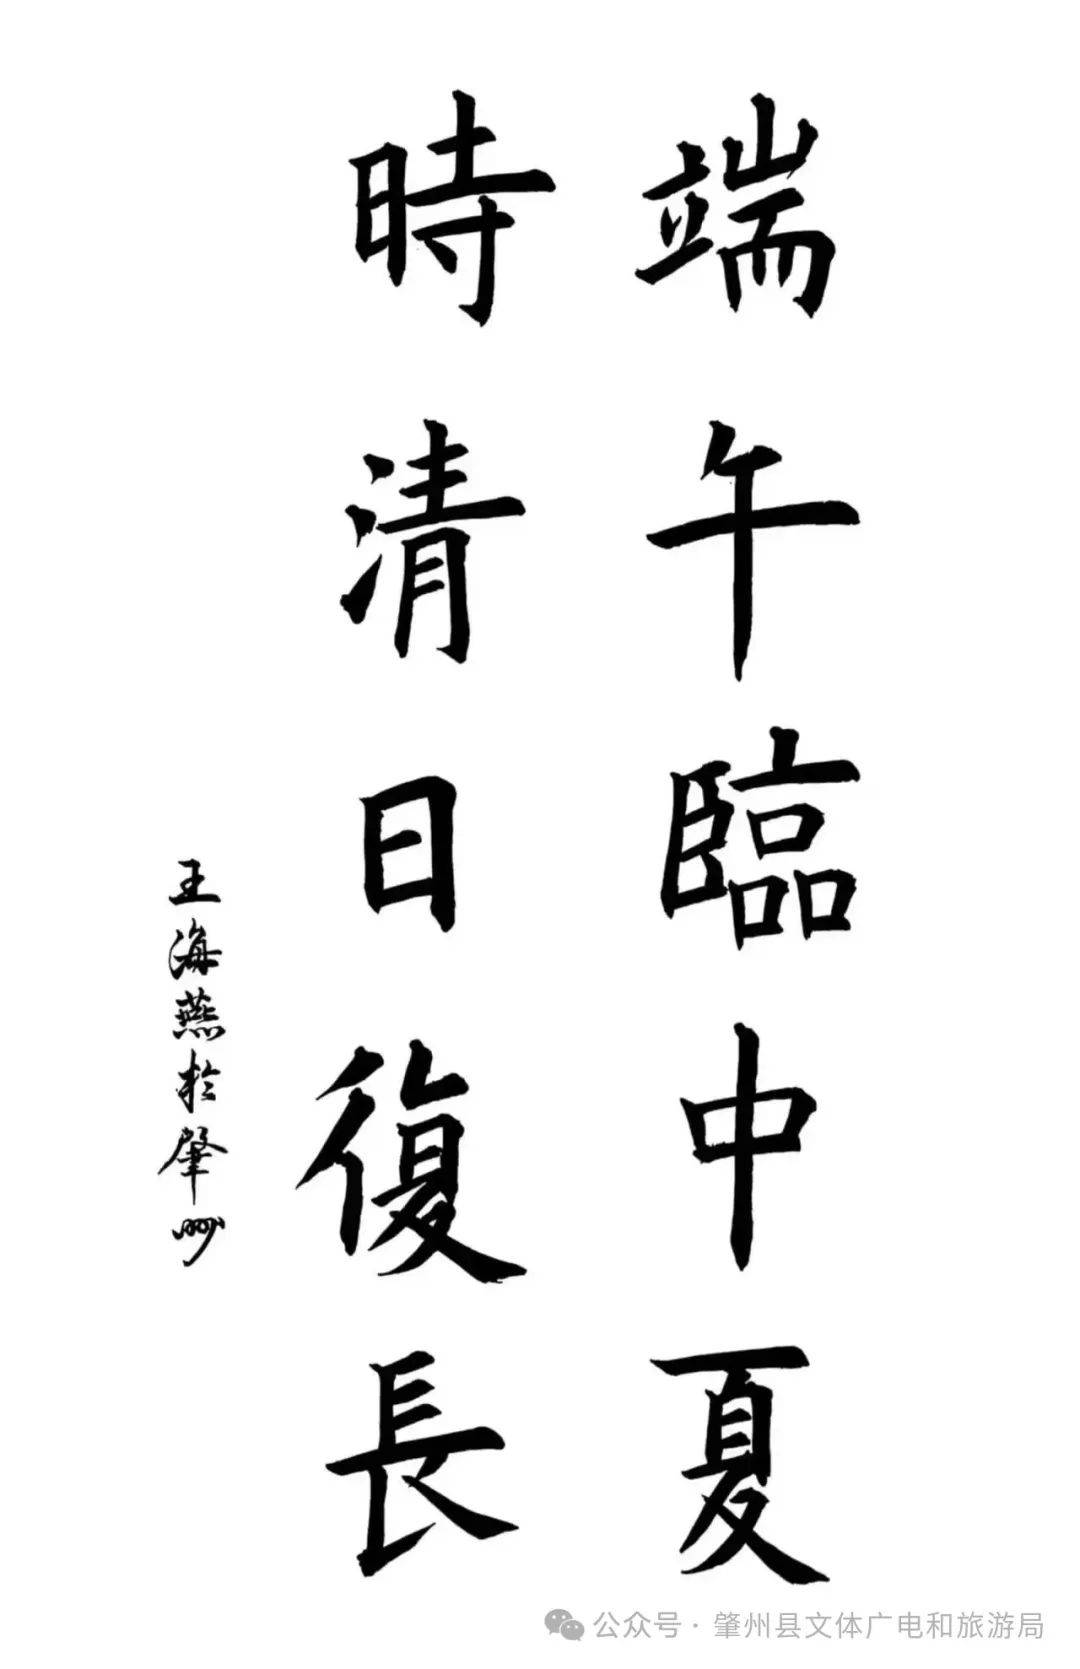 端午臨中夏
時清日復長
王海燕於肇州
公众号·肇州县文体广电和旅游局